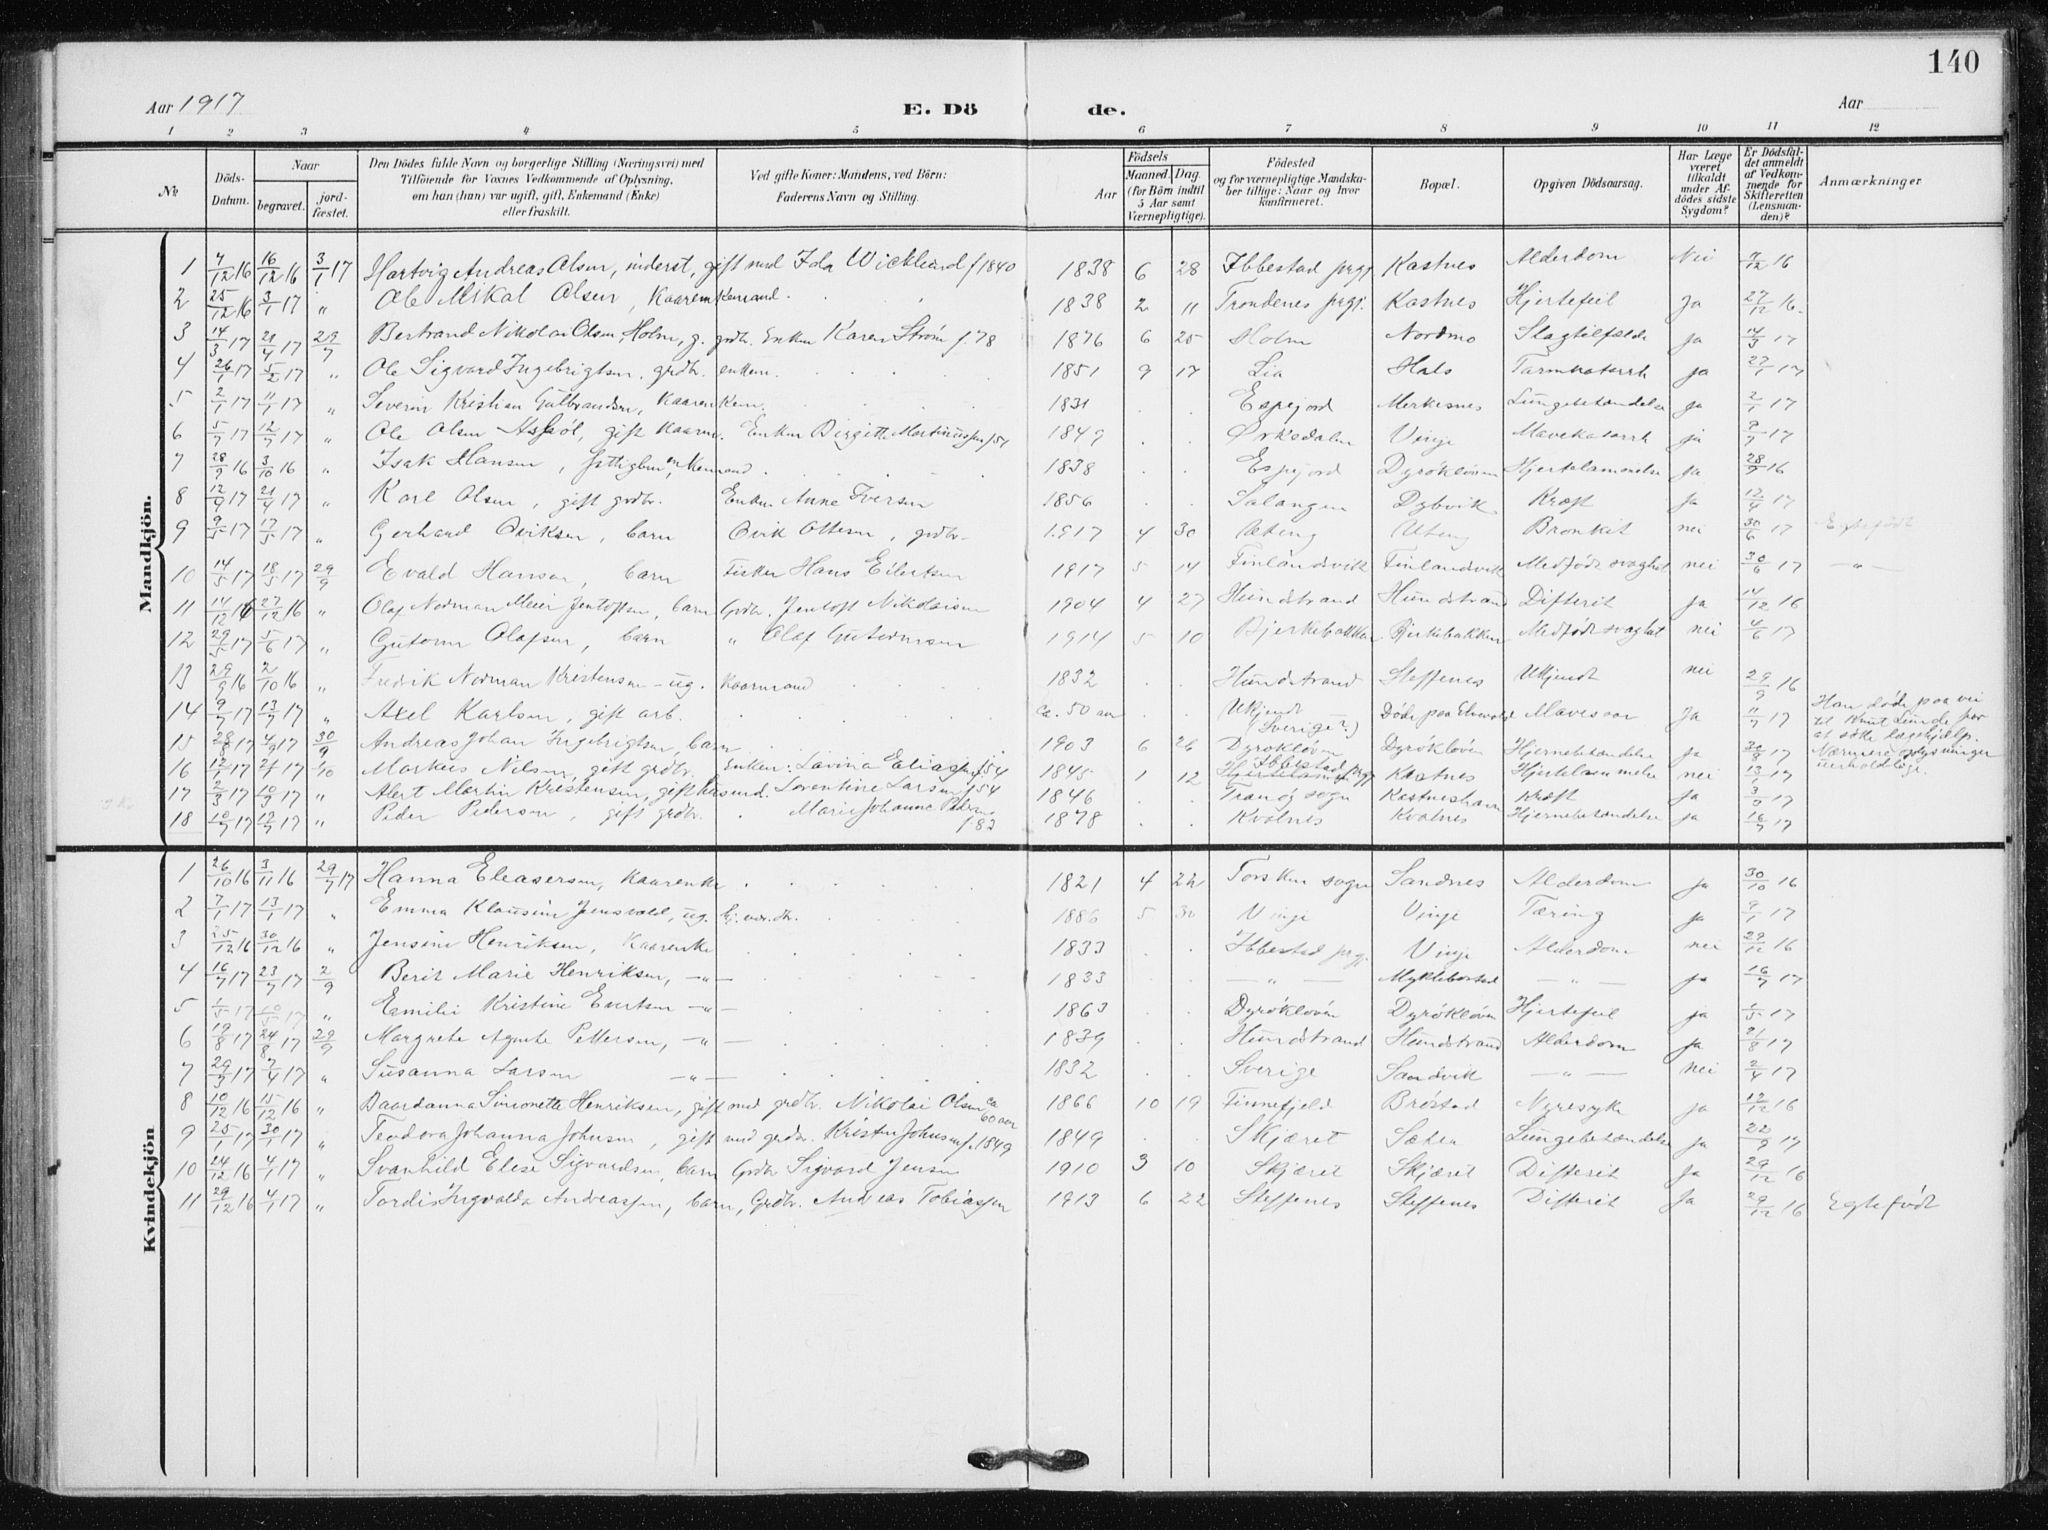 140
Aar 1917 E. Dö de. Aar
1 2 3 4 5 6 7 8 9 10 11 12
Nr. Döds-Datum. Naar begravet. jordfæstet. Den Dödes fulde Navn og borgerlige Stilling (Næringsvei) med Tilföiende for Voxnes Vedkommende af Oplysning, om han (hun) var ugift, gift, Enkemand (Enke) eller fraskilt. Ved gifte Koner: Mandens, ved Börn: Faderens Navn og Stilling. Födsels Aar Maaned. Dag. (for Börn indtil 5 Aar samt Værnepligtige). Födested og for værnepligtige Mandskaber tillige: Naar og hvor konfirmeret. Bopæl. Opgiven Dödsaarsag. Har Læge været tilkaldt under Afdödes sidste Sygdom? Er Dödsfaldet anmeldt af Vedkommende for Skifteretten (Lensmanden)? Anmærkninger
Mandkjön.
1 7/12 16 16/12 16 3/1 17 Hartvig Andreas Olsen, inderst, gift med Ida Wicklund f 1840 1838 6 28 Ibbestad prgj. Kastnes Alderdom Nei 7/12 16
2 25/12 16 3/1 17 " Ole Mikal Olsen, Kaarenkemand. 1838 2 " Trondenes prgj. Kastnes Hjertefeil Ja 27/12 16.
3 14/3 17 21/4 17 29/7 Bertrand Nikolai Olsen, Holm, g. grdbr. Enken Karen Strøm f. 78 1876 6 25 Holm Nordmo Slagtilfælde ja 14/3 17
4 26/1 17 5/2 17 " Ole Sigvard Ingebrigtsen. grdbr. enkem. 1851 9 17 Lia Hals Tarmkatarrh ja 27/1 17
5 2/1 17 11/1 17 " Severin Kristian Gulbrandsen, Kaarenkem. 1831 . . Espejord Merkesnes Lungebetændelse ja 2/1 17
6 5/7 17 12/7 17 " Ole Olsen, gift kaarm. Enken Birgitte Martinussen f 54 1849 . . Ørkedalen Vinje Mavekatarrh ja 9/7 17
7 28/9 16 3/10 16 " Isak Hansen, fattiglem, enkemand 1838 . . Espejord Dyrökløven Hjertelammelse ja 28/9 16
8 12/4 17 21/4 17 " Karl Olsen, gift grdbr. Enken Anne Iversen 1856 . . Salangen Dybvik Kræft ja 12/4 17
9 9/5 17 17/5 17 " Gerhard Qviksen, barn Qvik Ottesen, grdbr. 1917 4 30 Uteng Uteng Bronkit nei 30/6 17 Egtefødt
10 14/5 17 18/5 17 29/9 Evald Hansen, barn Fisker Hans Eilertsen 1917 5 14 Finlandsvik Finlandsvik Medfødt svaghet nei 30/6 17 —"—
11 14/12 16 27/12 16 " Olaf Norman Meier Jentoftsen, barn Grdbr. Jentoft Nikolaisen 1904 4 27 Hundstrand Hundstrand Difterit ja 14/12 16
12 29/5 17 5/6 17 " Gutorm Olafsen, barn " Olaf Gutormsen 1914 5 10 Bjerkebakken Bjerkebakken Medfødt svaghet nei 4/6 17
13 29/9 16 2/10 16 " Fredrik Norman Kristensen - ug. Kaarmand 1832 . . Hundstrand Steffenes Ukjendt nei 29/9 16
14 9/7 17 13/7 17 " Axel Karlsen, gift arb. ca. 50 aar Ukjendt (Sverige?) Døde paa Elvevold Mavesaar Ja 11/7 17 Han døde paa vei til Knut Lunde for at søke lægehjælp. Nærmere oplysninger uerholdelige.
15 28/8 17 4/9 17 30/9 Andreas Johan Ingebrigtsen, barn 1903 6 26 Dyrökløven Dyrökløven Hjernebetændelse ja 30/8 17
16 12/1 17 2/1 17 1/10 Markus Nilsen, gift grdbr. Enken: Lavina Eliassen f 54 1845 1 12 Ibbestad prgj Kastnes Hjertelammelse nei 13/1 17
17 2/3 17 10/3 17 " Alert Martin Kristensen, gift husmd. Leventine Larsen f 54 1846 . . Tranöy sogn Kastneshavn Kræft ja 3/3 17
18 10/7 17 12/7 17 " Peder Pedersen, gift grdbr. Marie Johanne Pedersen f. 82 1878 . . Kvalnes Kvalnes Hjernebetændelse ja 16/7 17
Kvindekjön
1 26/10 16 3/11 16 29/7 17 Hanna Eleasersen, Kaarenke 1821 4 22 Torsken sogn Sandnes Alderdom ja 30/10 16
2 7/1 17 13/1 17 " Emma Klausine Jensvold, ug. 1886 5 30 Vinje Vinje Tæring ja 9/1 17
3 25/12 16 30/12 16 " Jensine Henriksen, Kaarenke 1833 . . Ibbestad prgj. Vinje Alderdom nei 29/12 16
4 16/7 17 23/7 17 2/9 Berit Marie Henriksen, —"— 1833 . . —"— Myklebostad —"— ja 16/7 17
5 1/5 17 10/5 17 " Emilie Kristine Evertsen —"— 1863 . . Dyrökløven Dyrökløven Hjertefeil ja 1/5 17
6 19/8 17 24/8 17 29/9 Margrete Agnete Pettersen, —"— 1839 . . Hundstrand Hundstrand Alderdom ja 21/8 17
7 29/3 17 7/4 17 " Susanna Larsen —"— 1832 . . Sverige Sandvik —"— nei 2/4 17
8 10/12 16 15/12 16 " Baardanna Simonette Henriksen, gift med grdbr. Nikolai Olsen ca 60 aar 1866 10 19 Finnefjeld Brøstad Nyresyke ja 12/12 16
9 25/1 17 30/1 17 " Teodora Johanna Johnsen, gift med grdbr. Kristen Johnsen f. 1849 1849 . . Skjæret Sæter Lungebetændelse ja 22/9 17
10 24/12 16 4/1 17 " Svanhild Elise Sigvardsen, barn Grdbr Sigvard Jensen 1910 3 10 Skjæret Skjæret Difterit ja 29/12 16
11 29/12 16 4/1 17 " Tordis Ingvalda Andreassen, barn, Grdbr. Andreas Tobiassen 1913 6 22 Steffenes Steffenes Difterit Ja 29/12 16 Egtefødt